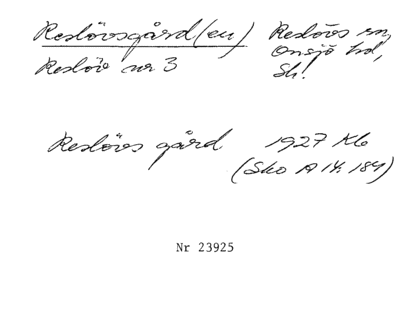 Reslövsgård(en) Reslövs sn,
Reslöv nr 3 Onsjö hd,
Sk!
Reslövs gård 1927 Kb
(Sko A 14. 184)
Nr 23925